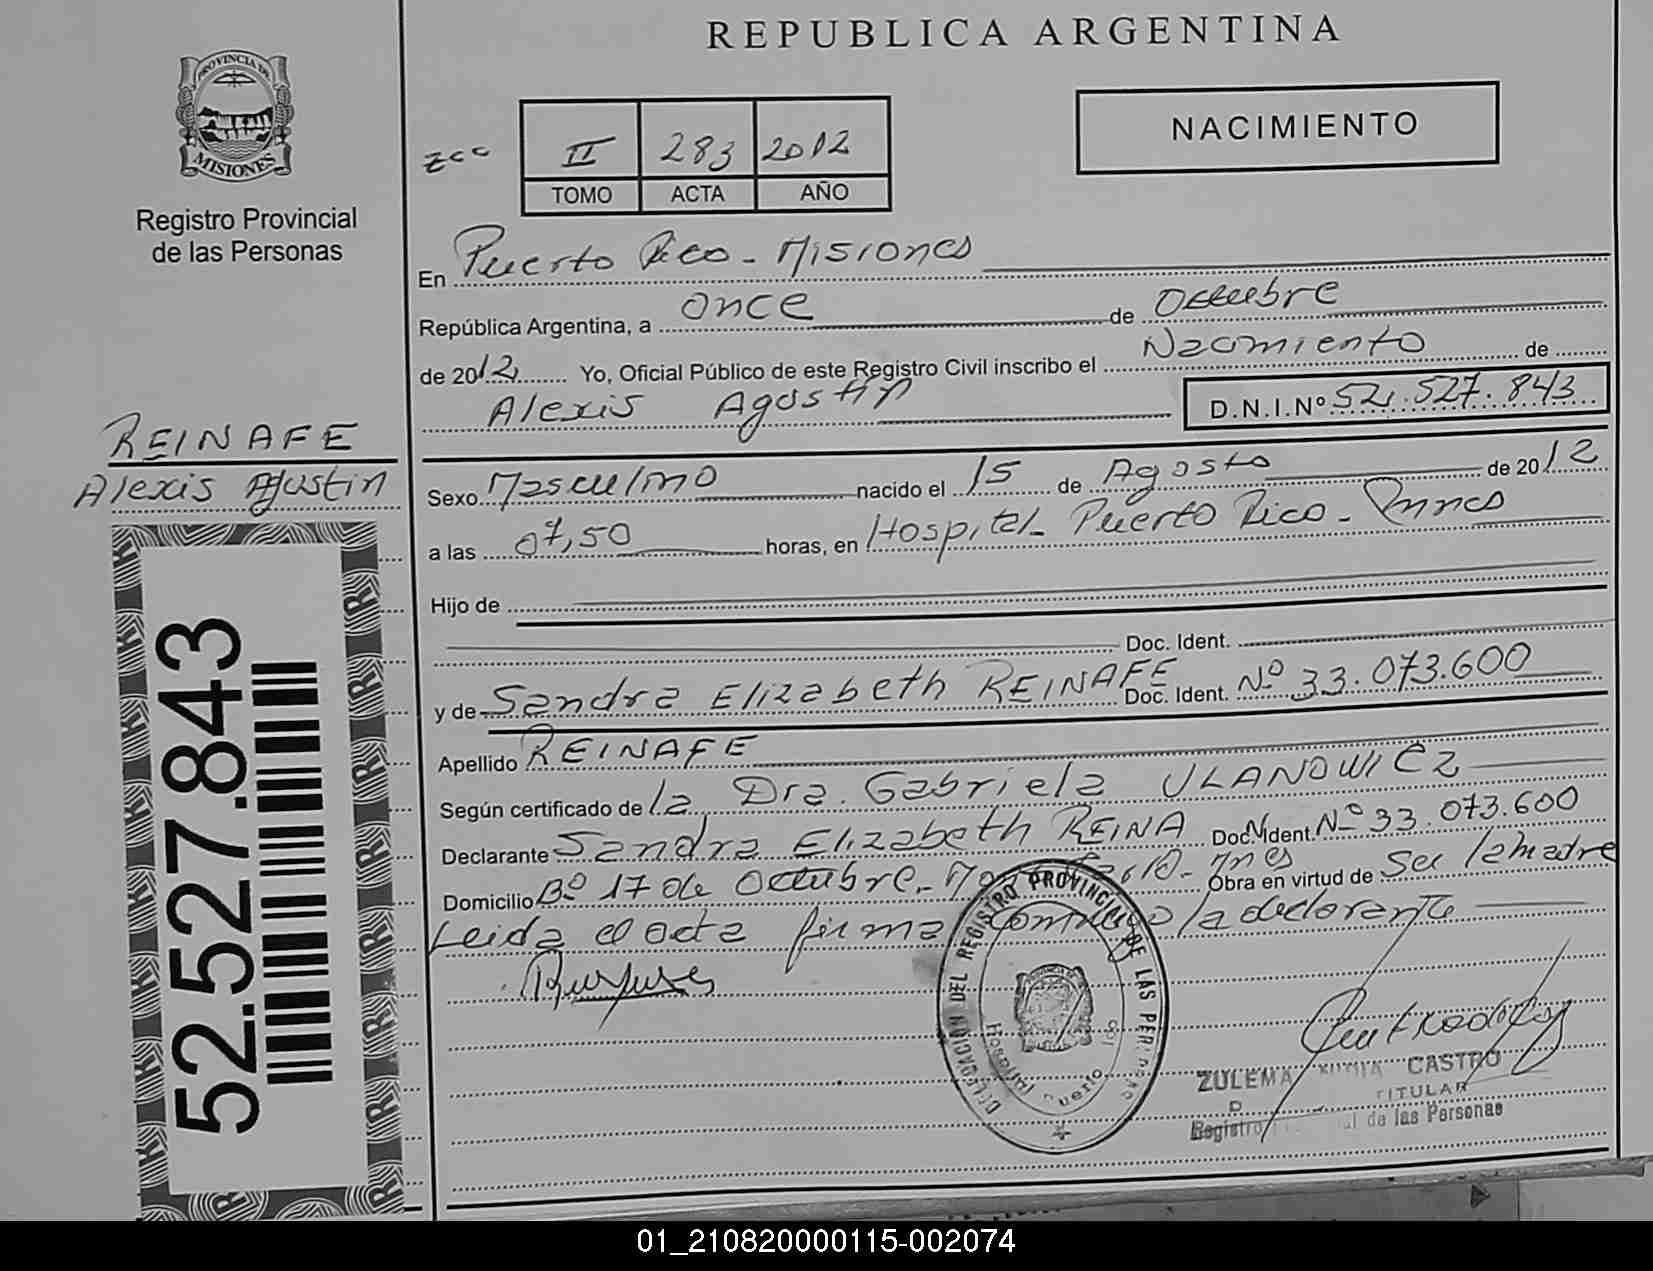 REPUBLICA ARGENTINA
PROVINCIA DE
MISIONES
Registro Provincial
de las Personas
NACIMIENTO
II 283 2012
TOMO ACTA AÑO
En Puerto Rico - Misiones
República Argentina, a once de Octubre
de 2012 Yo, Oficial Público de este Registro Civil inscribo el Nacimiento de
Alexis Agostin D.N.I.Nº 52.527.843
REINAFE
Alexis Agustin
Sexo Masculino nacido el 15 de Agosto de 2012
a las 07,50 horas, en Hospital Puerto Rico -
Hijo de
Doc. Ident.
y de Sandra Elizabeth REINAFE Doc. Ident. Nº 33.073.600
Apellido REINAFE
Según certificado de la Dra. Gabriela ULANOWICZ
Declarante Sandra Elizabeth REINA Doc. Ident. Nº 33.073.600
Domicilio Bº 17 de Octubre - Mnes Obra en virtud de Ser la madre
Leida el acta firma conmigo la declarante
52.527.843
DELEGACION DEL REGISTRO PROVINCIAL DE LAS PERSONAS
Hospital Puerto
ZULEMA CASTRO
TITULAR
Registro de las Personas
01_210820000115-002074